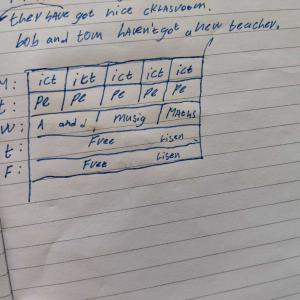 they have got nice cklasvoom.
bob and tom haven't got a new teacher.
M: ict ict ict ict ict
t: pe pe pe pe pe
W: A and d musig Maths
t: Free Lisen
F: Free Lisen